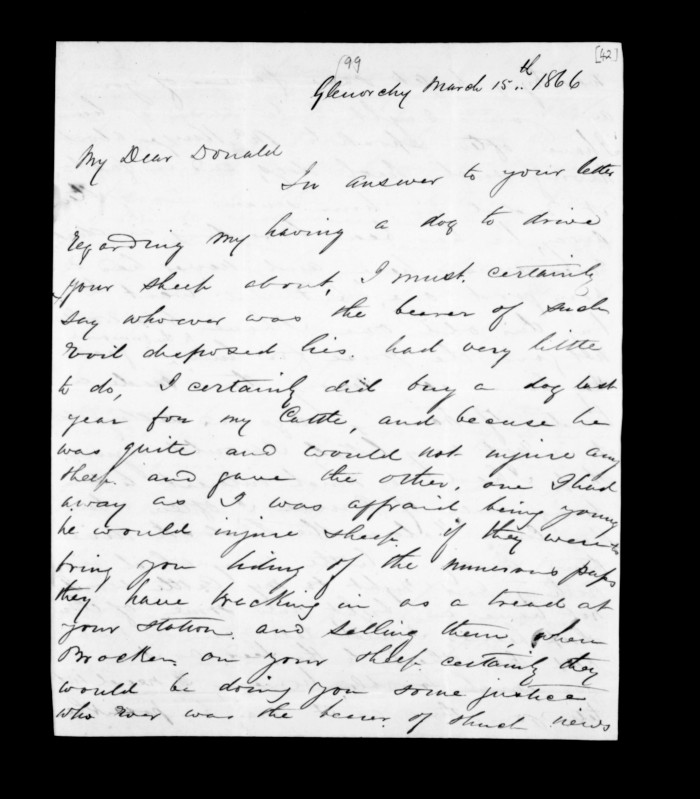 99
[42]
Glenorchy March 15th 1866
My Dear Donald
In answer to your letter
regarding my having a dog to drive
your sheep about, I must certainly
say whoever was the bearer of such
Evil disposed lies. had very little
to do, I certainly did buy a dog last
year for my Cattle, and becuse he
was quite and would not injure any
sheep and gave the other, one I had
away as I was affraid being young
he would injure sheep if they were to
bring you tiding of the numerous pups
they have breaking in as a tread at
your station and selling them, when
Brocken on your sheep certainly they
would be doing you some justice
who ever was the bearer of shuch news